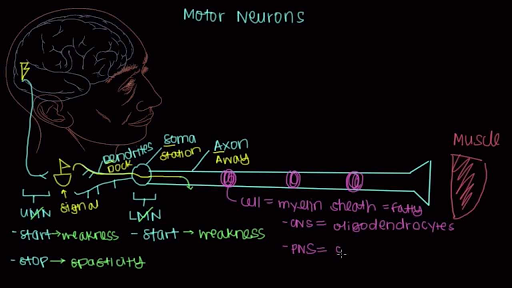 Motor Neurons
Dendrites
Dock
Soma
Station
Axon
Away
Muscle
signal
UMN
LMN
cell = myelin sheath = fatty
- CNS = oligodendrocytes
- PNS = S
- start → weakness
- start → weakness
- stop → spasticity